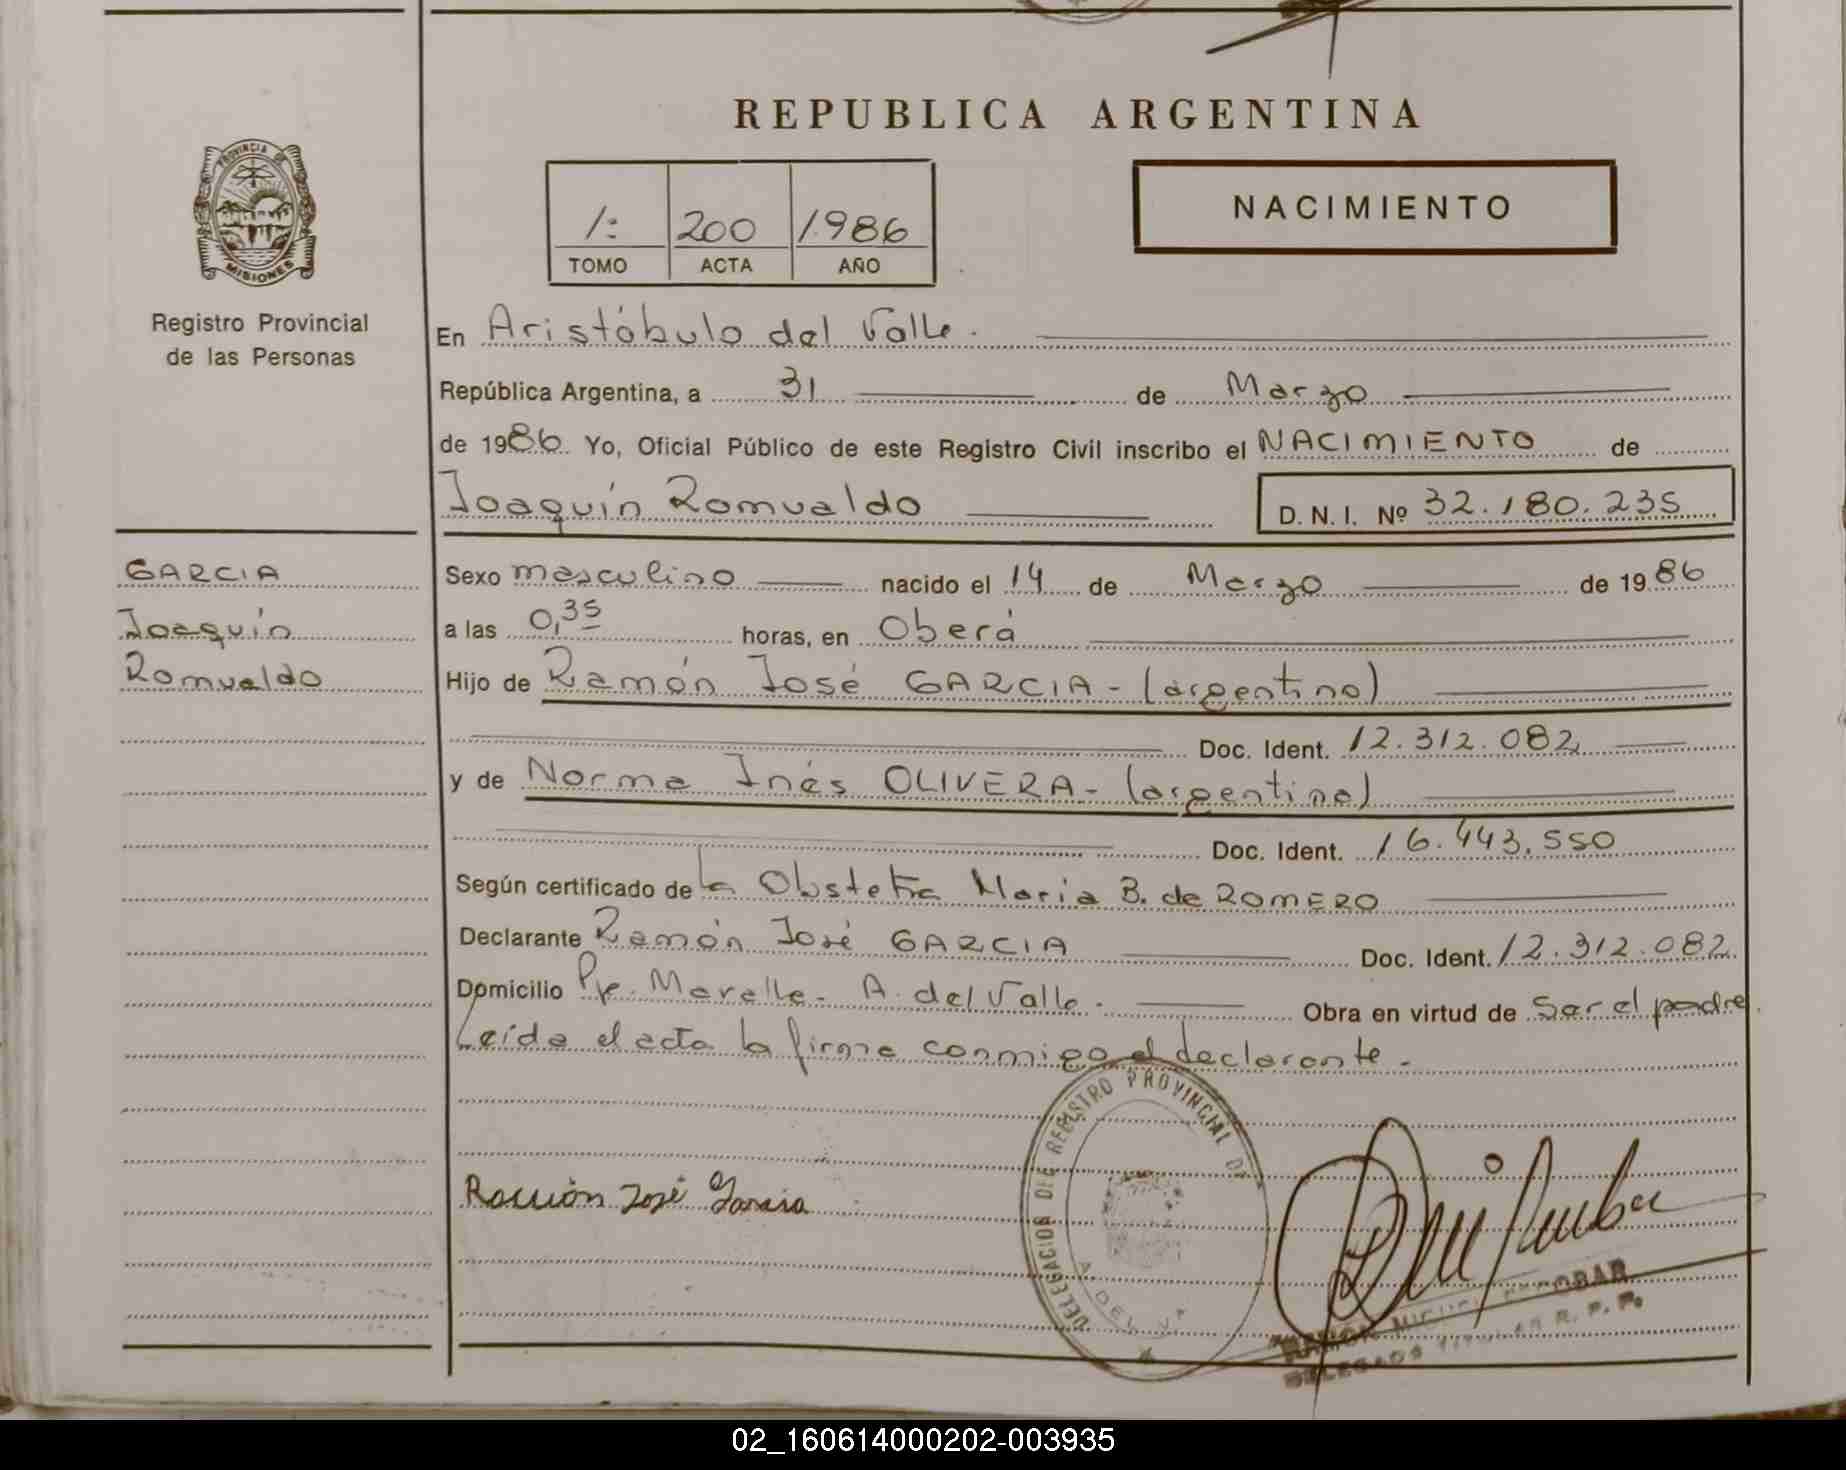 REPUBLICA ARGENTINA
PROVINCIA DE
MISIONES
Registro Provincial
de las Personas
1: 200 1986
TOMO ACTA AÑO
NACIMIENTO
En Aristóbulo del Valle.
República Argentina, a 31 de Marzo
de 1986 Yo, Oficial Público de este Registro Civil inscribo el NACIMIENTO de
Joaquín Romualdo D.N.I. Nº 32.180.235
GARCIA
Joaquín
Romualdo
Sexo masculino nacido el 14 de Marzo de 1986
a las 0,35 horas, en Oberá
Hijo de Ramón José GARCIA - (argentino)
Doc. Ident. 12.312.082
y de Norma Inés OLIVERA - (argentina)
Doc. Ident. 16.443.550
Según certificado de la Obstetra Maria B. de ROMERO
Declarante Ramón José GARCIA Doc. Ident. 12.312.082
Domicilio A. del Valle. Obra en virtud de ser el padre.
Leída el acta la firma conmigo el declarante.
DELEGACION DEL REGISTRO PROVINCIAL DE
A. DEL VA
Ramón José Garcia
RAMON MIGUEL ESCOBAR
DELEGADO TITULAR R. P. P.
02_160614000202-003935